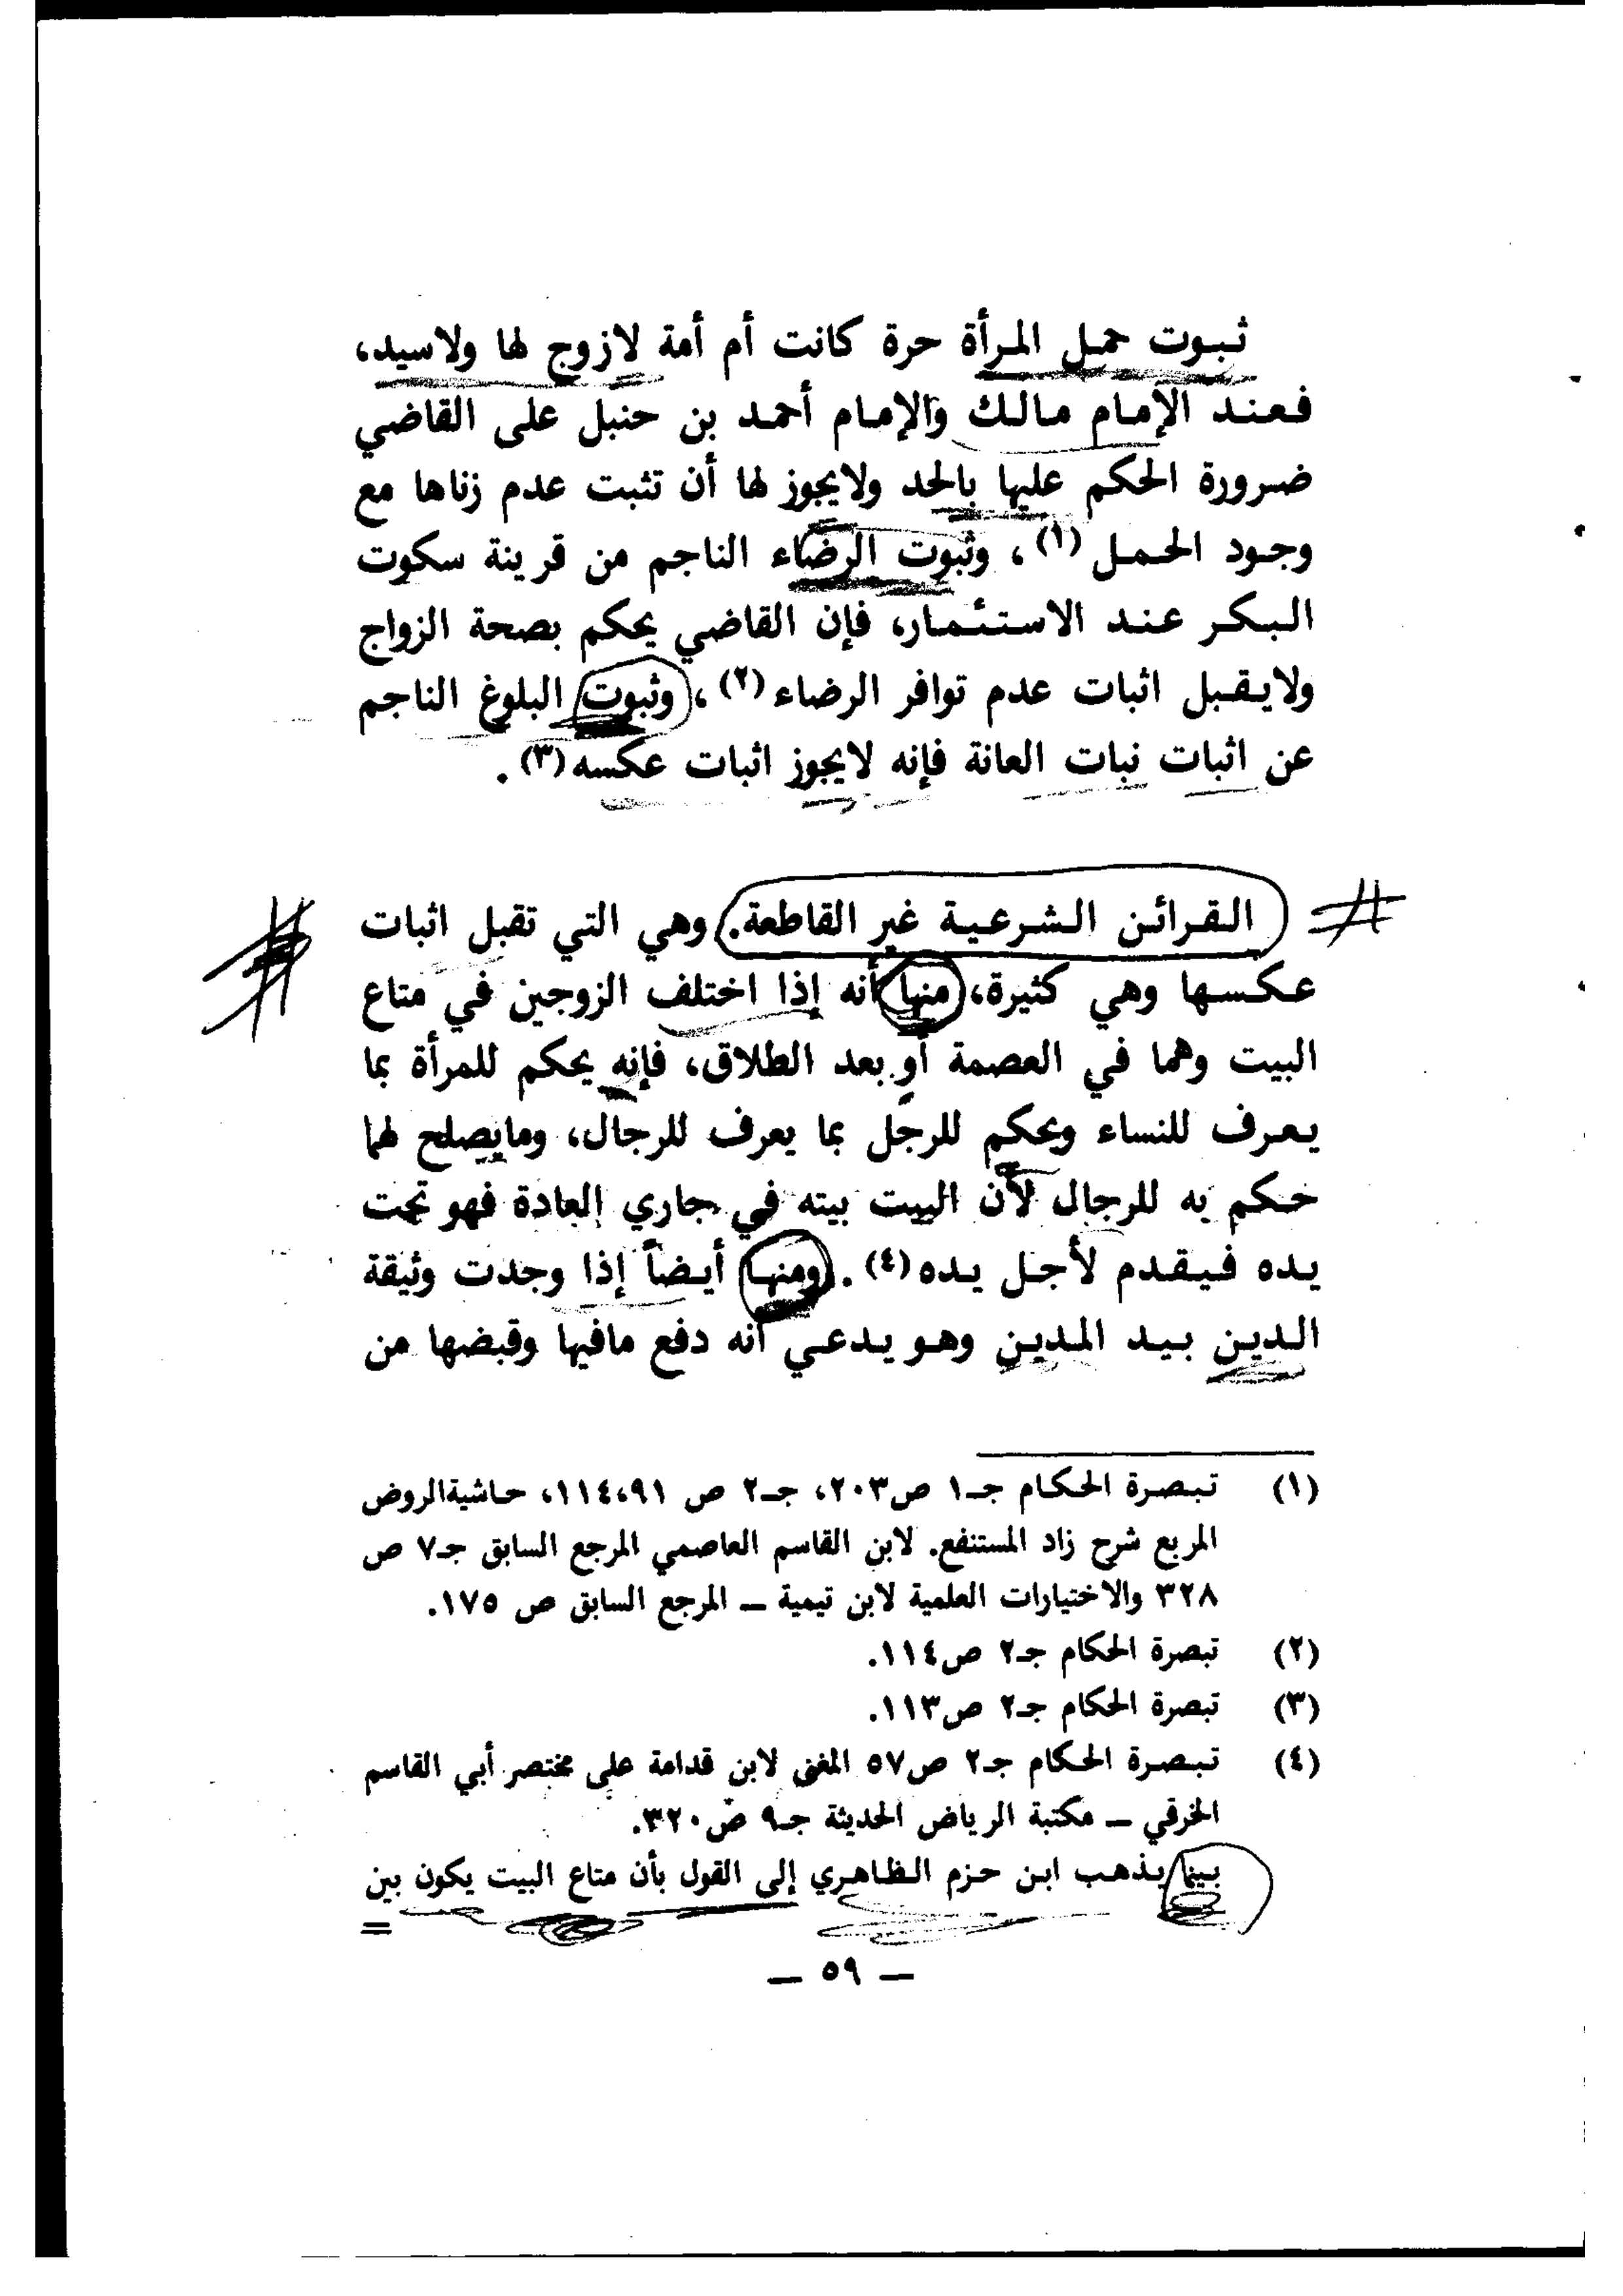 ثبوت حمل المرأة حرة كانت أم أمة لازوج لها ولاسيد،
فعند الإمام مالك والإمام أحمد بن حنبل على القاضي
ضرورة الحكم عليها بالحد ولايجوز لها أن تثبت عدم زناها مع
وجود الحمل (١)، وثبوت الرضاء الناجم من قرينة سكوت
البكر عند الاستئمار، فإن القاضي يحكم بصحة الزواج
ولايقبل اثبات عدم توافر الرضاء (٢)، وثبوت البلوغ الناجم
عن اثبات نبات العانة فإنه لايجوز اثبات عكسه (٣).
القرائن الشرعية غير القاطعة. وهي التي تقبل اثبات
عكسها وهي كثيرة، منها أنه إذا اختلف الزوجين في متاع
البيت وهما في العصمة أو بعد الطلاق، فإنه يحكم للمرأة بما
يعرف للنساء ويحكم للرجل بما يعرف للرجال، ومايصلح لهما
حكم به للرجال لأن البيت بيته في جاري العادة فهو تحت
يده فيقدم لأجل يده (٤). ومنها أيضاً إذا وجدت وثيقة
الدين بيد المدين وهو يدعي أنه دفع مافيها وقبضها من
(١) تبصرة الحكام جـ١ ص٢٠٣، جـ٢ ص ٩١،١١٤، حاشيةالروض
المربع شرح زاد المستنفع. لابن القاسم العاصمي المرجع السابق جـ٧ ص
٣٢٨ والاختيارات العلمية لابن تيمية ــ المرجع السابق ص ١٧٥.
(٢) تبصرة الحكام جـ٢ ص١١٤.
(٣) تبصرة الحكام جـ٢ ص١١٣.
(٤) تبصرة الحكام جـ٢ ص٥٧ المغنى لابن قدامة على مختصر أبي القاسم
الخرقي ــ مكتبة الرياض الحديثة جـ٩ ص٣٢٠.
بينما يذهب ابن حزم الظاهري إلى القول بأن متاع البيت يكون بين
=
ــ ٥٩ ــ